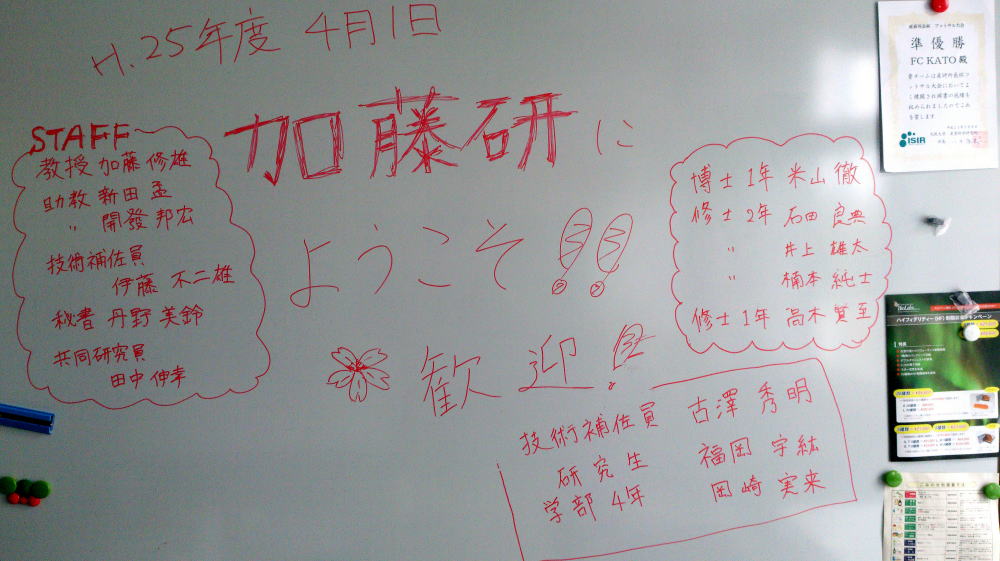 H.25年度 4月1日
加藤研に
ようこそ!!
歓迎!
STAFF
教授 加藤 修雄
助教 新田 孟
〃 開發 邦宏
技術補佐員
伊藤 不二雄
秘書 丹野 美鈴
共同研究員
田中 伸幸
博士 1年 米山 徹
修士 2年 石田 良典
〃 井上 雄太
〃 楠本 純士
修士 1年 高木 賢至
技術補佐員 古澤 秀明
研究生 福岡 宇紘
学部 4年 岡崎 実来
準優勝
FC KATO 殿
ISIR